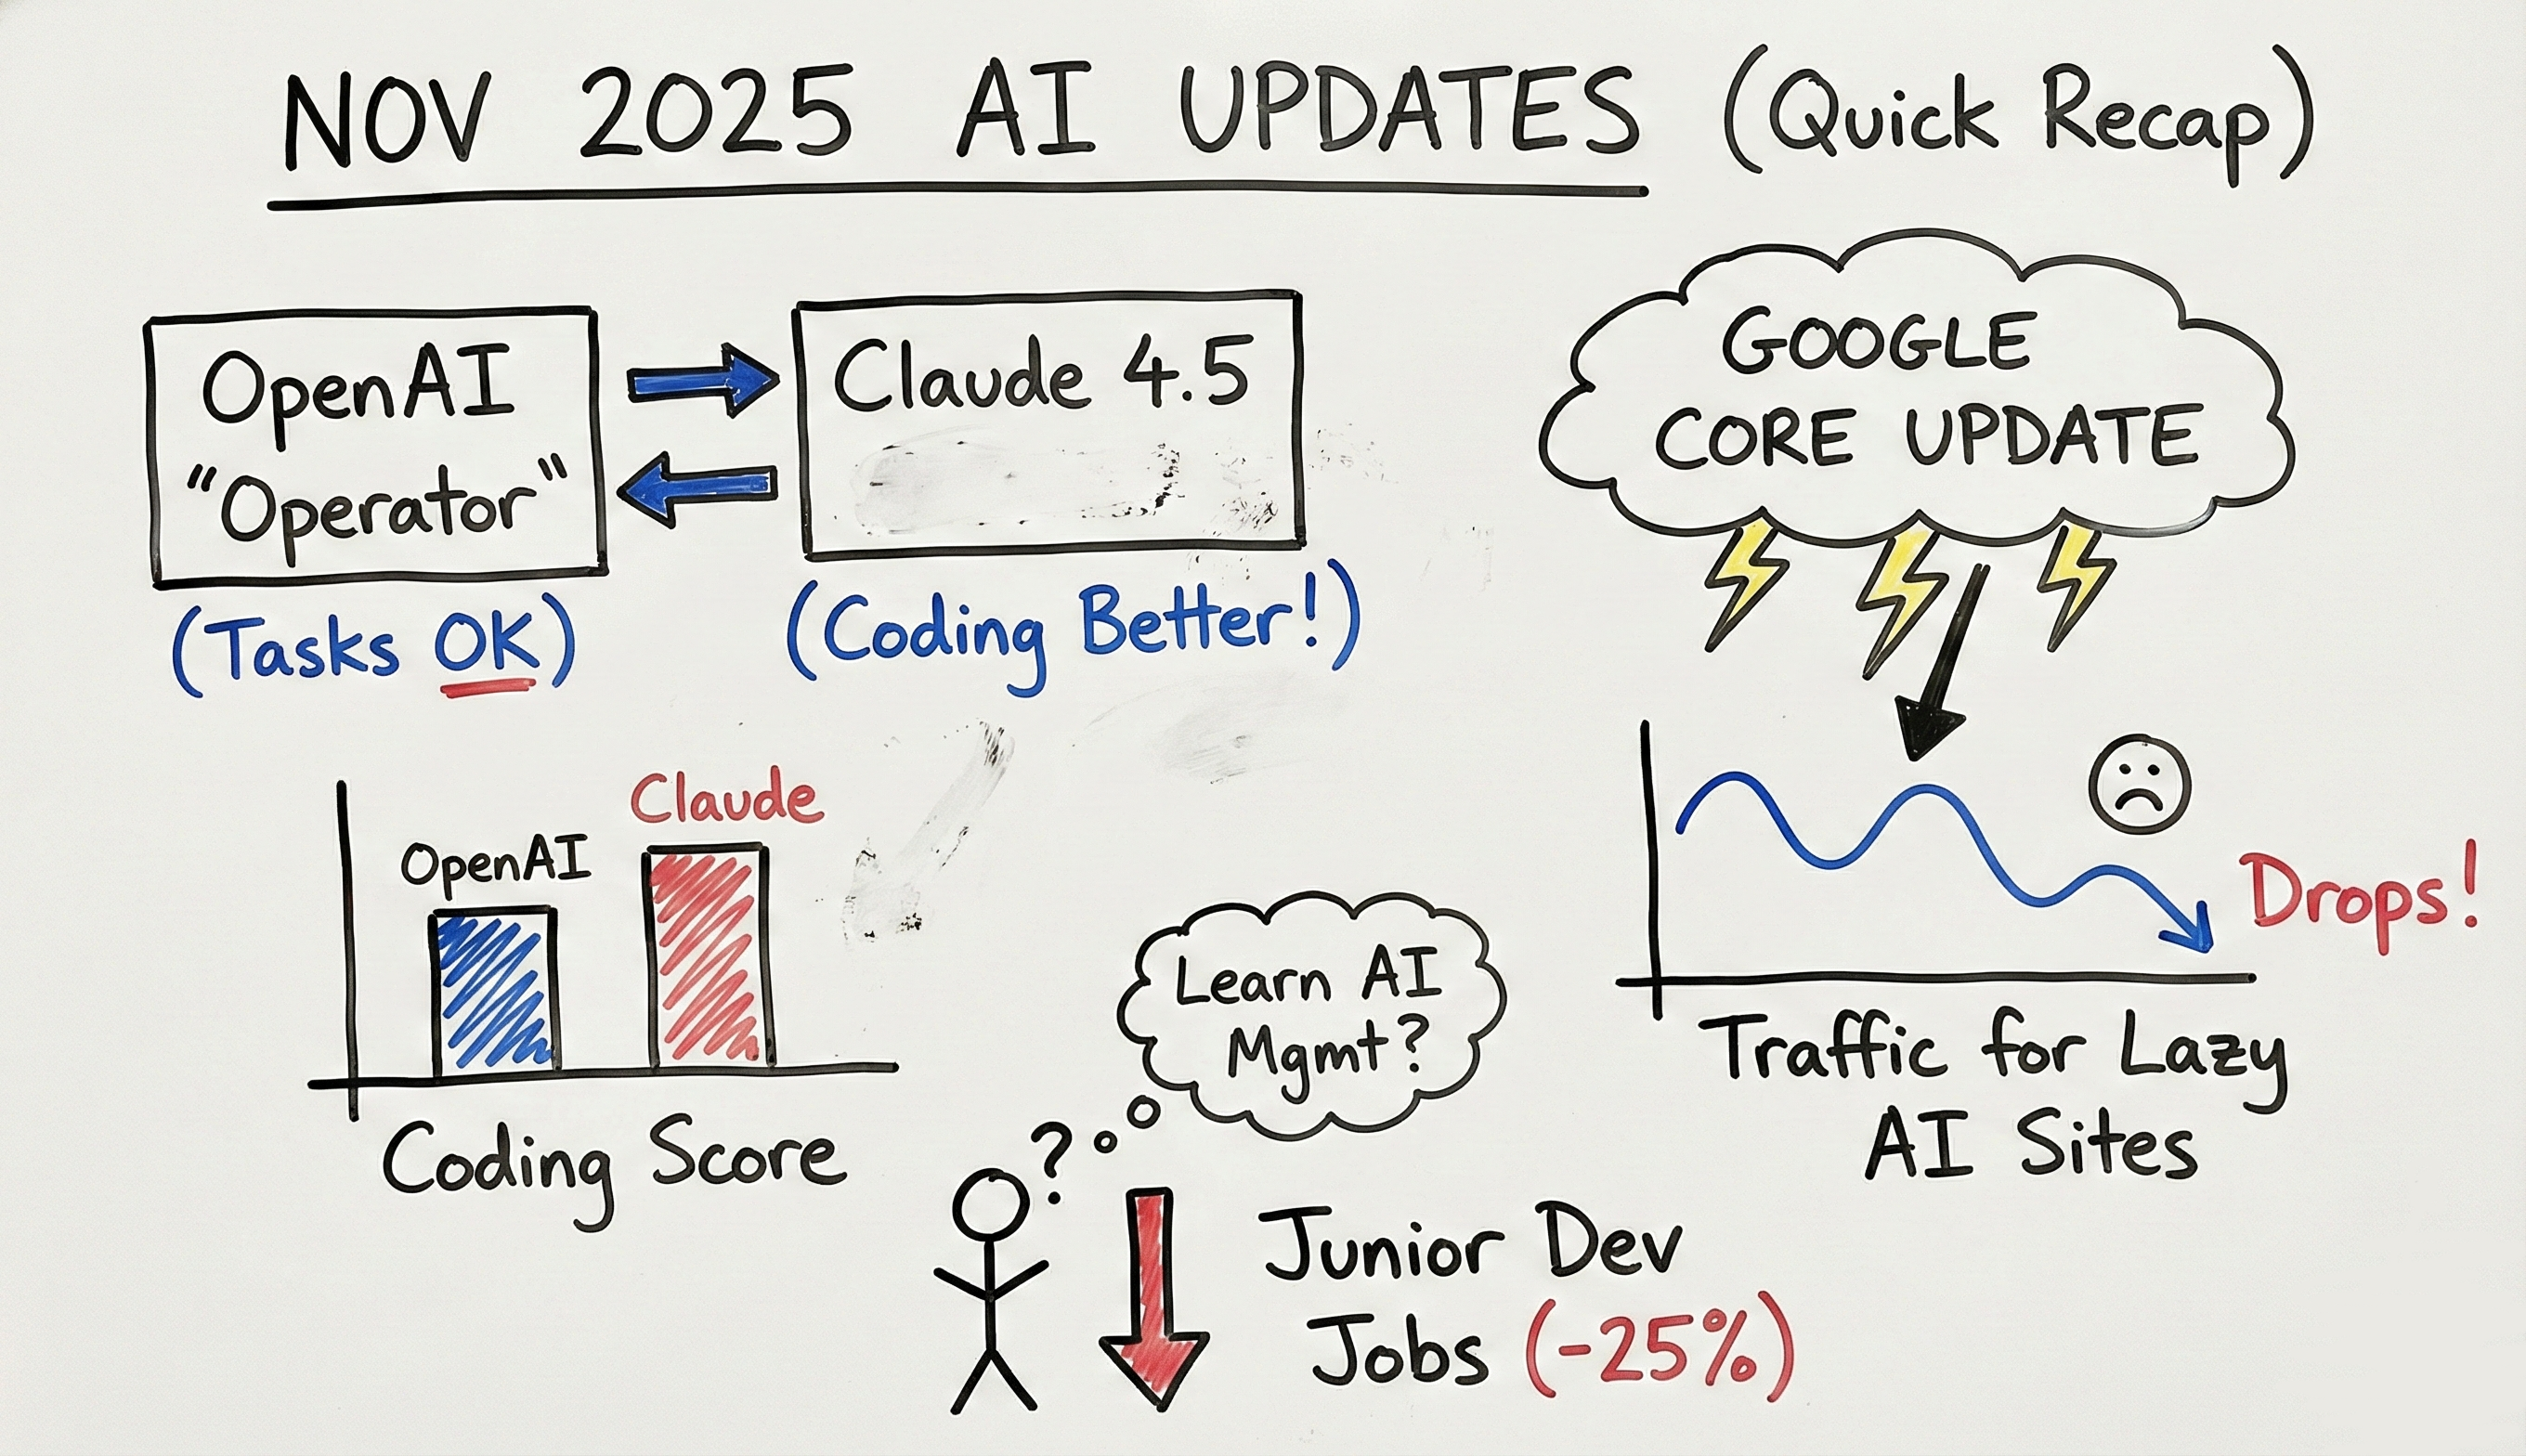 NOV 2025 AI UPDATES (Quick Recap)
OpenAI
"Operator"
(Tasks OK)
Claude 4.5
(Coding Better!)
GOOGLE
CORE UPDATE
OpenAI
Claude
Coding Score
Drops!
Traffic for Lazy
AI Sites
Learn AI
Mgmt?
?
Junior Dev
Jobs (-25%)